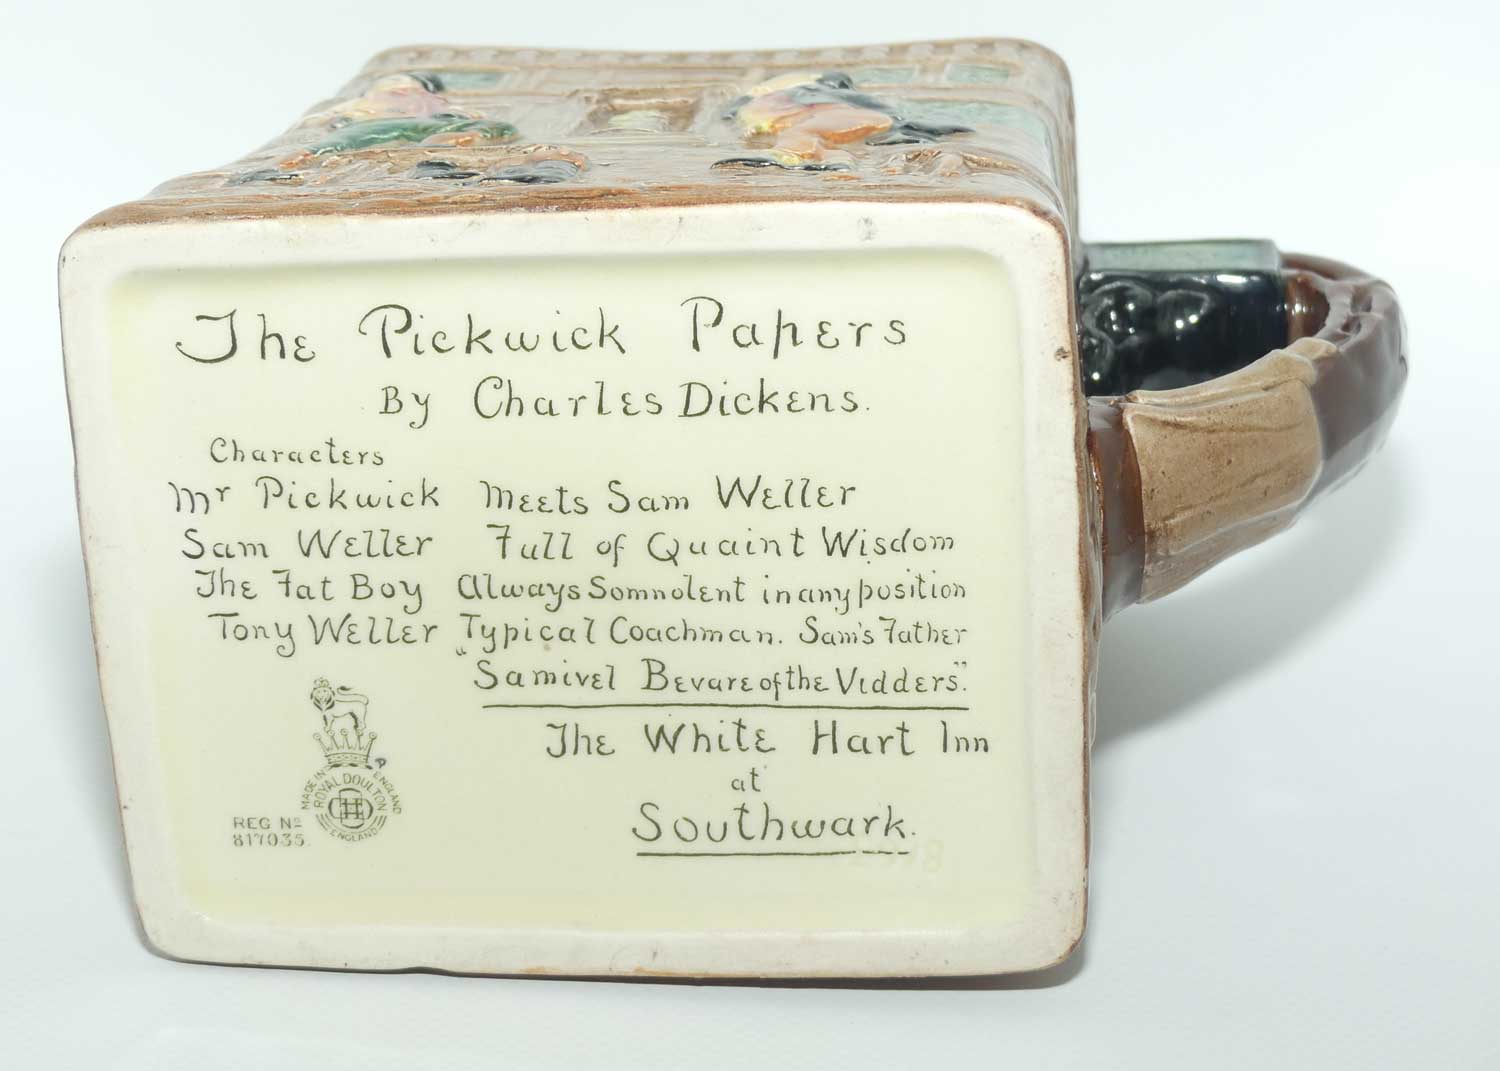 The Pickwick Papers
By Charles Dickens.
Characters
Mr Pickwick Meets Sam Weller
Sam Weller Full of Quaint Wisdom
The Fat Boy Always Somnolent in any position
Tony Weller Typical Coachman. Sam's Father
"Samivel Bevare of the Vidders".
The White Hart Inn
at
Southwark.
MADE IN ENGLAND
ROYAL DOULTON
ENGLAND
REG No
817035.